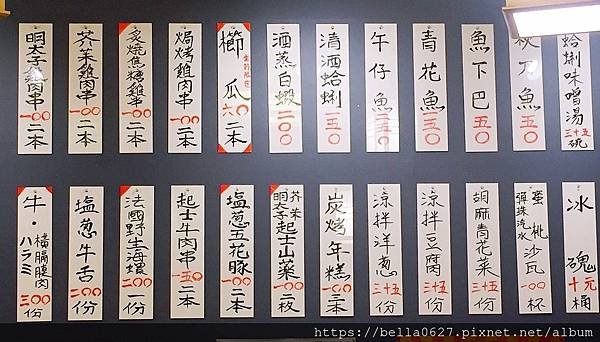 明太子雞肉串 一〇〇 二本
芥茉雞肉串 一〇〇 二本
炙燒焦糖雞串 一〇〇 二本
焗烤雞肉串 一〇〇 二本
櫛瓜 六〇 二本
酒蒸白蝦 二〇〇
清酒蛤蜊 一五〇
午仔魚 二五〇
青花魚 一五〇
魚下巴 五〇
秋刀魚 五〇
蛤蜊味噌湯 三十五 碗
牛・橫膈膜肉 ハラミ 三〇〇 份
塩蔥牛舌 二〇〇 份
法國野生海螺 二〇〇 一份
起士牛肉串 一五〇 二本
塩蔥五花豚 一〇〇 二本
芥茉 明太子 起士山藥 一〇〇 二枚
炭烤年糕 一〇〇 三本
涼拌洋蔥 三十五 份
涼拌豆腐 三十五 份
胡麻青花菜 三十五 份
蜜桃沙瓦 彈珠汽水 一〇〇 杯
冰塊 十元 桶
https://bella0627.pixnet.net/album